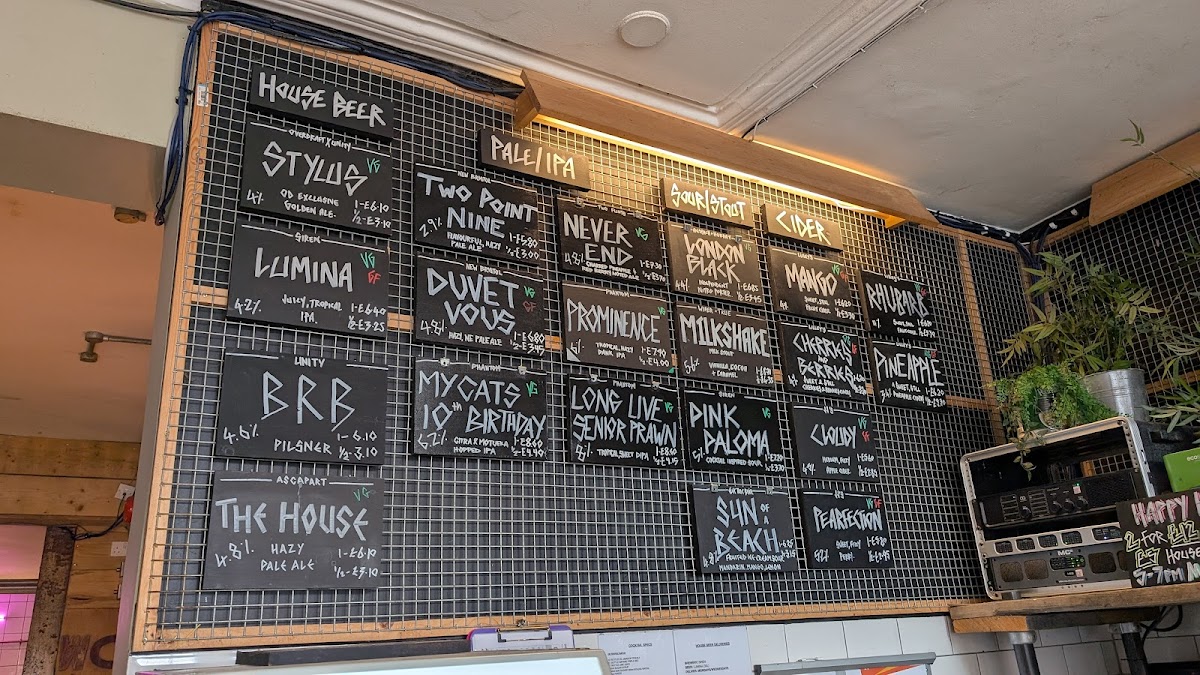 HOUSE BEER
OVERDRAFT X UNITY
STYLUS VG
4% OD EXCLUSIVE 1-£6.10
GOLDEN ALE. ½-£3.10
SIREN
LUMINA VG
GF
4.2% JUICY, TROPICAL 1-£6.40
IPA ½-£3.25
UNITY
BRB
4.6% PILSNER 1-6.10
½-3.10
ASCAPART
THE HOUSE VG
4.8% HAZY 1-6.10
PALE ALE ½-£3.10
PALE/IPA
NEW BRISTOL
TWO POINT
NINE
2.9% FLAVOURFUL, HAZY 1-£5.80
PALE ALE ½-£3.00
NEW BRISTOL
DUVET VG
VOUS GF
4.8% HAZI, NE PALE ALE 1-£6.80
½-£3.45
PHANTOM
MY CATS VG
10TH BIRTHDAY
6.2% CITRA & MOTUEKA 1-£8.60
HOPPED IPA ½-£4.30
NEVER VG
END
4.8% 1-£7.30
PHANTOM
PROMINENCE VG
TROPICAL, HAZY 1-£7.90
DANK, IPA ½-£4.00
PHANTOM
LONG LIVE VG
SENIOR PRAWN
TROPICAL, SWEET DIPA
SOUR/STOUT
LONDON
BLACK
4.4% 1-£6.85
NITRO PORTER ½-£3.45
WIPER & TRUE
MILKSHAKE
MILK STOUT
5.6% VANILLA, COCOA
+ CARAMEL
SIREN
PINK VG
PALOMA
5% COCKTAIL INSPIRED SOUR 1-£7.20
SUN OF A
BEACH
FRUITED ICE CREAM SOUR
MANDARIN, MANGO, LEMON
CIDER
MANGO
4% 1-£6.20
CHERRIES
AND
BERRIES
H&B
CLOUDY VG
GF
4% MEDIUM, HAZY
APPLE CIDER.
PEARFECTION VG
GF
PERRY.
RHUBARB
4%
PINEAPPLE
SWEET, STILL 1-£6.20
PINEAPPLE CIDER
HAPPY
2 FOR £12
HOUSE
5-7PM
WC